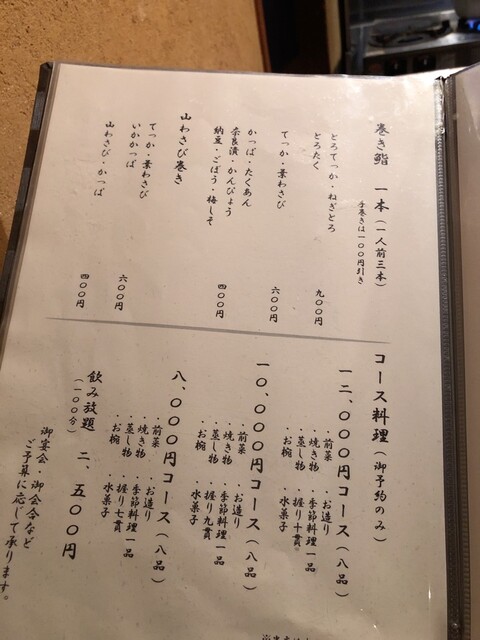 巻き鮨 一本(一人前三本)
手巻きは一〇〇円引き
とろてっか・ねぎとろ
とろたく 九〇〇円
てっか・葉わさび 六〇〇円
かっぱ・たくあん
奈良漬・かんぴょう
納豆・ごぼう・梅しそ 四〇〇円
山わさび巻き
てっか・葉わさび
いかかっぱ 六〇〇円
山わさび・かっぱ 四〇〇円
コース料理(御予約のみ)
一二、〇〇〇円コース(八品)
・前菜 ・お造り
・焼き物 ・季節料理一品
・蒸し物 ・握り十貫
・お椀 ・水菓子
一〇、〇〇〇円コース(八品)
・前菜 ・お造り
・焼き物 ・季節料理一品
・蒸し物 ・握り九貫
・お椀 ・水菓子
八、〇〇〇円コース(八品)
・前菜 ・お造り
・焼き物 ・季節料理一品
・蒸し物 ・握り七貫
・お椀 ・水菓子
飲み放題 二、五〇〇円
(一〇〇分)
御宴会・御会合など
ご予算に応じて承ります。